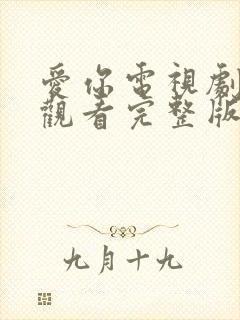 愛你電視劇
觀看完整版
九月十九